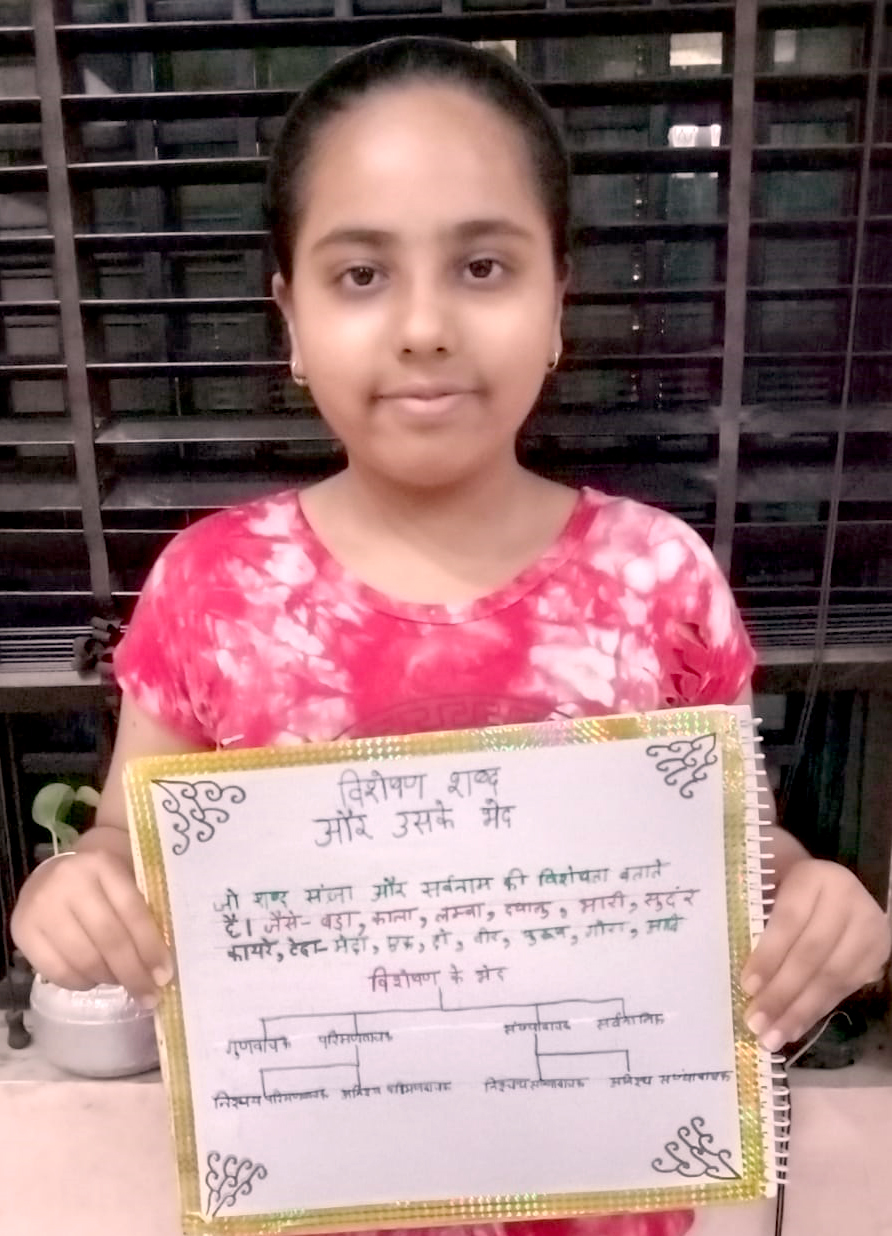 विशेषण शब्द
और उसके भेद
जो शब्द संज्ञा और सर्वनाम की विशेषता बताते
है। जैसे- बड़ा, काला, लम्बा, दयालु, भारी, सुदंर
कायर, टेढ़ा-मेढ़ा, एक, दो, वीर, कुरूप, गोरा, आदि
विशेषण के भेद
गुणवाचक परिमाणवाचक संख्यावाचक सर्वनामिक
निश्चय परिमाणवाचक अनिश्चय परिमाणवाचक निश्चय संख्यावाचक अनिश्चय संख्यावाचक